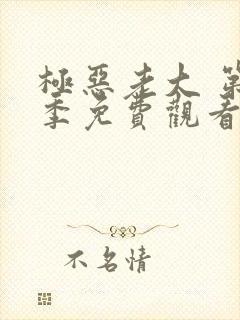 極惡老大 第
季免費觀看
不名情